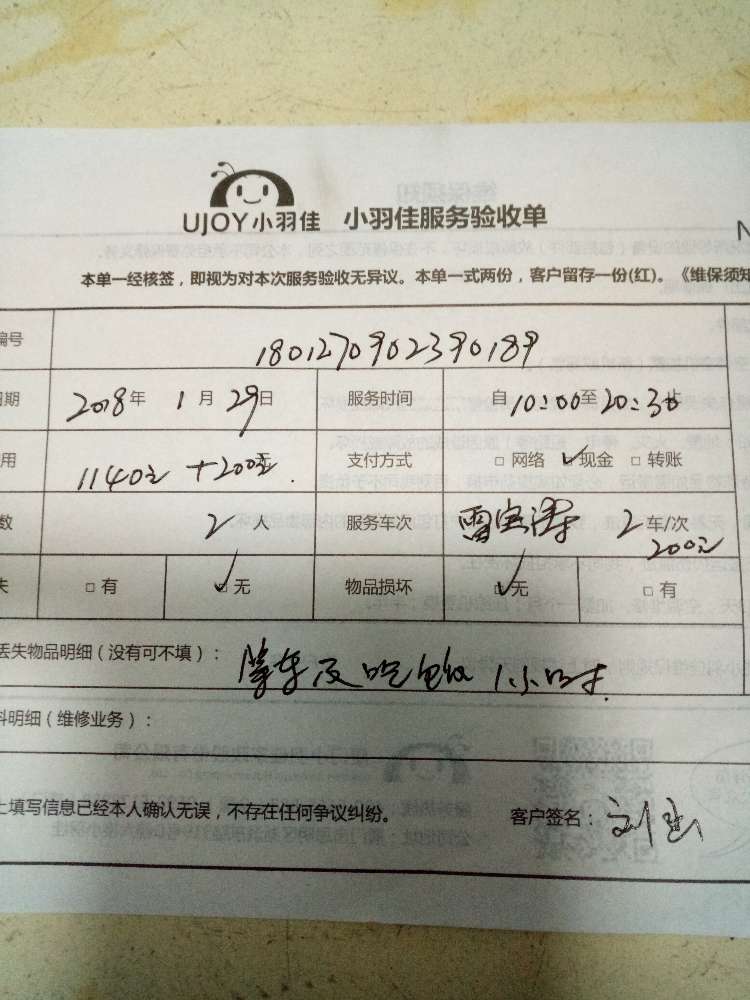 UJOY小羽佳 小羽佳服务验收单
N
本单一经核签，即视为对本次服务验收无异议。本单一式两份，客户留存一份(红)。《维保须知
编号 1801270902390189
日期 2018年 1月29日 服务时间 自10:00至20:30止
用 1140元+200元. 支付方式 □网络 ☑现金 □转账
数 2人 服务车次 雷 2车/次
200元
失 □有 ☑无 物品损坏 ☑无 □有
丢失物品明细（没有可不填）： 等车及吃饭1小时.
料明细（维修业务）：
上填写信息已经本人确认无误，不存在任何争议纠纷。 客户签名：刘